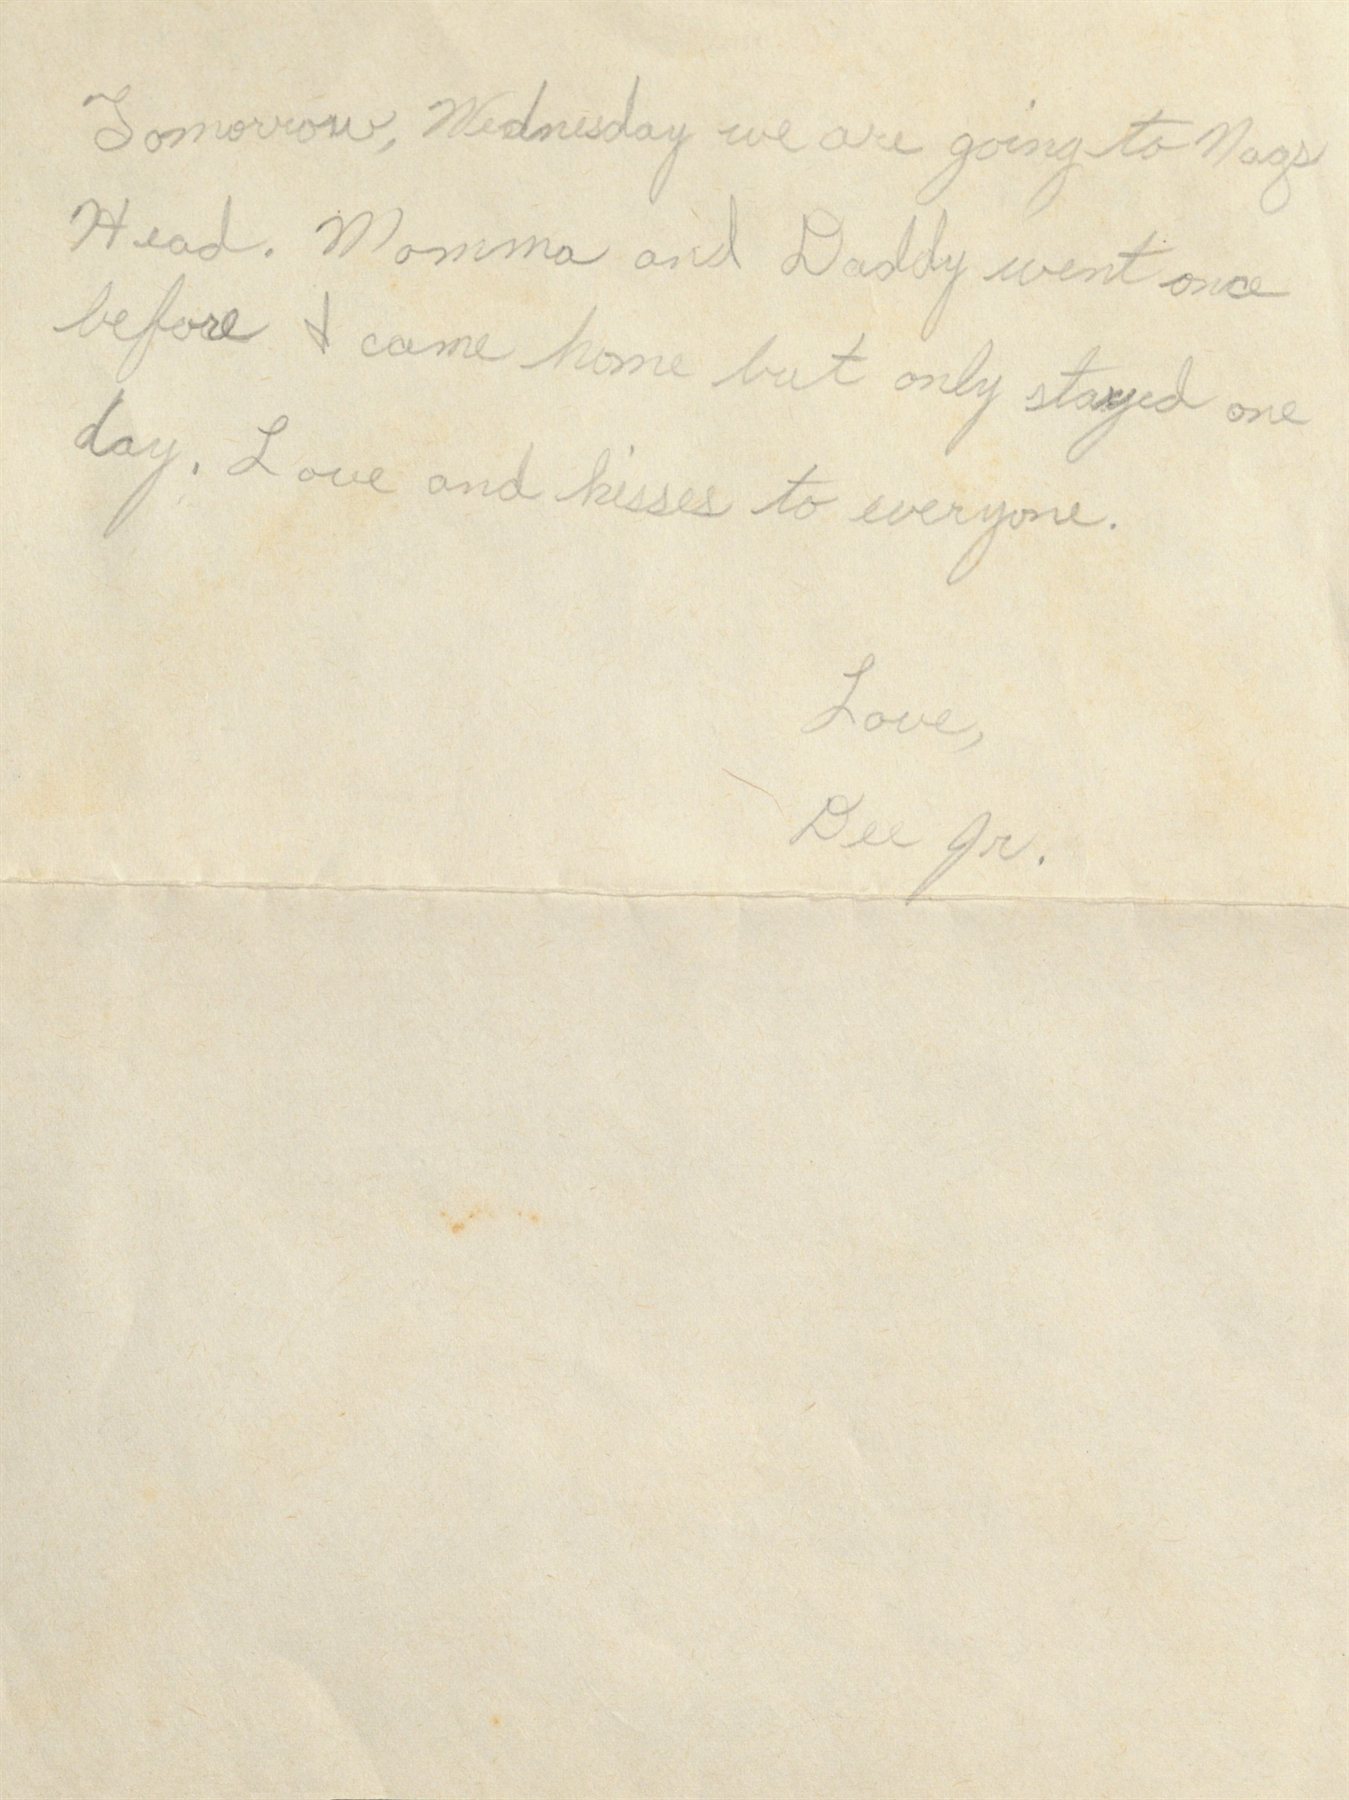 Tomorrow, Wednesday we are going to Nags
Head. Momma and Daddy went once
before I came home but only stayed one
day. Love and kisses to everyone.
Love,
Dee Jr.